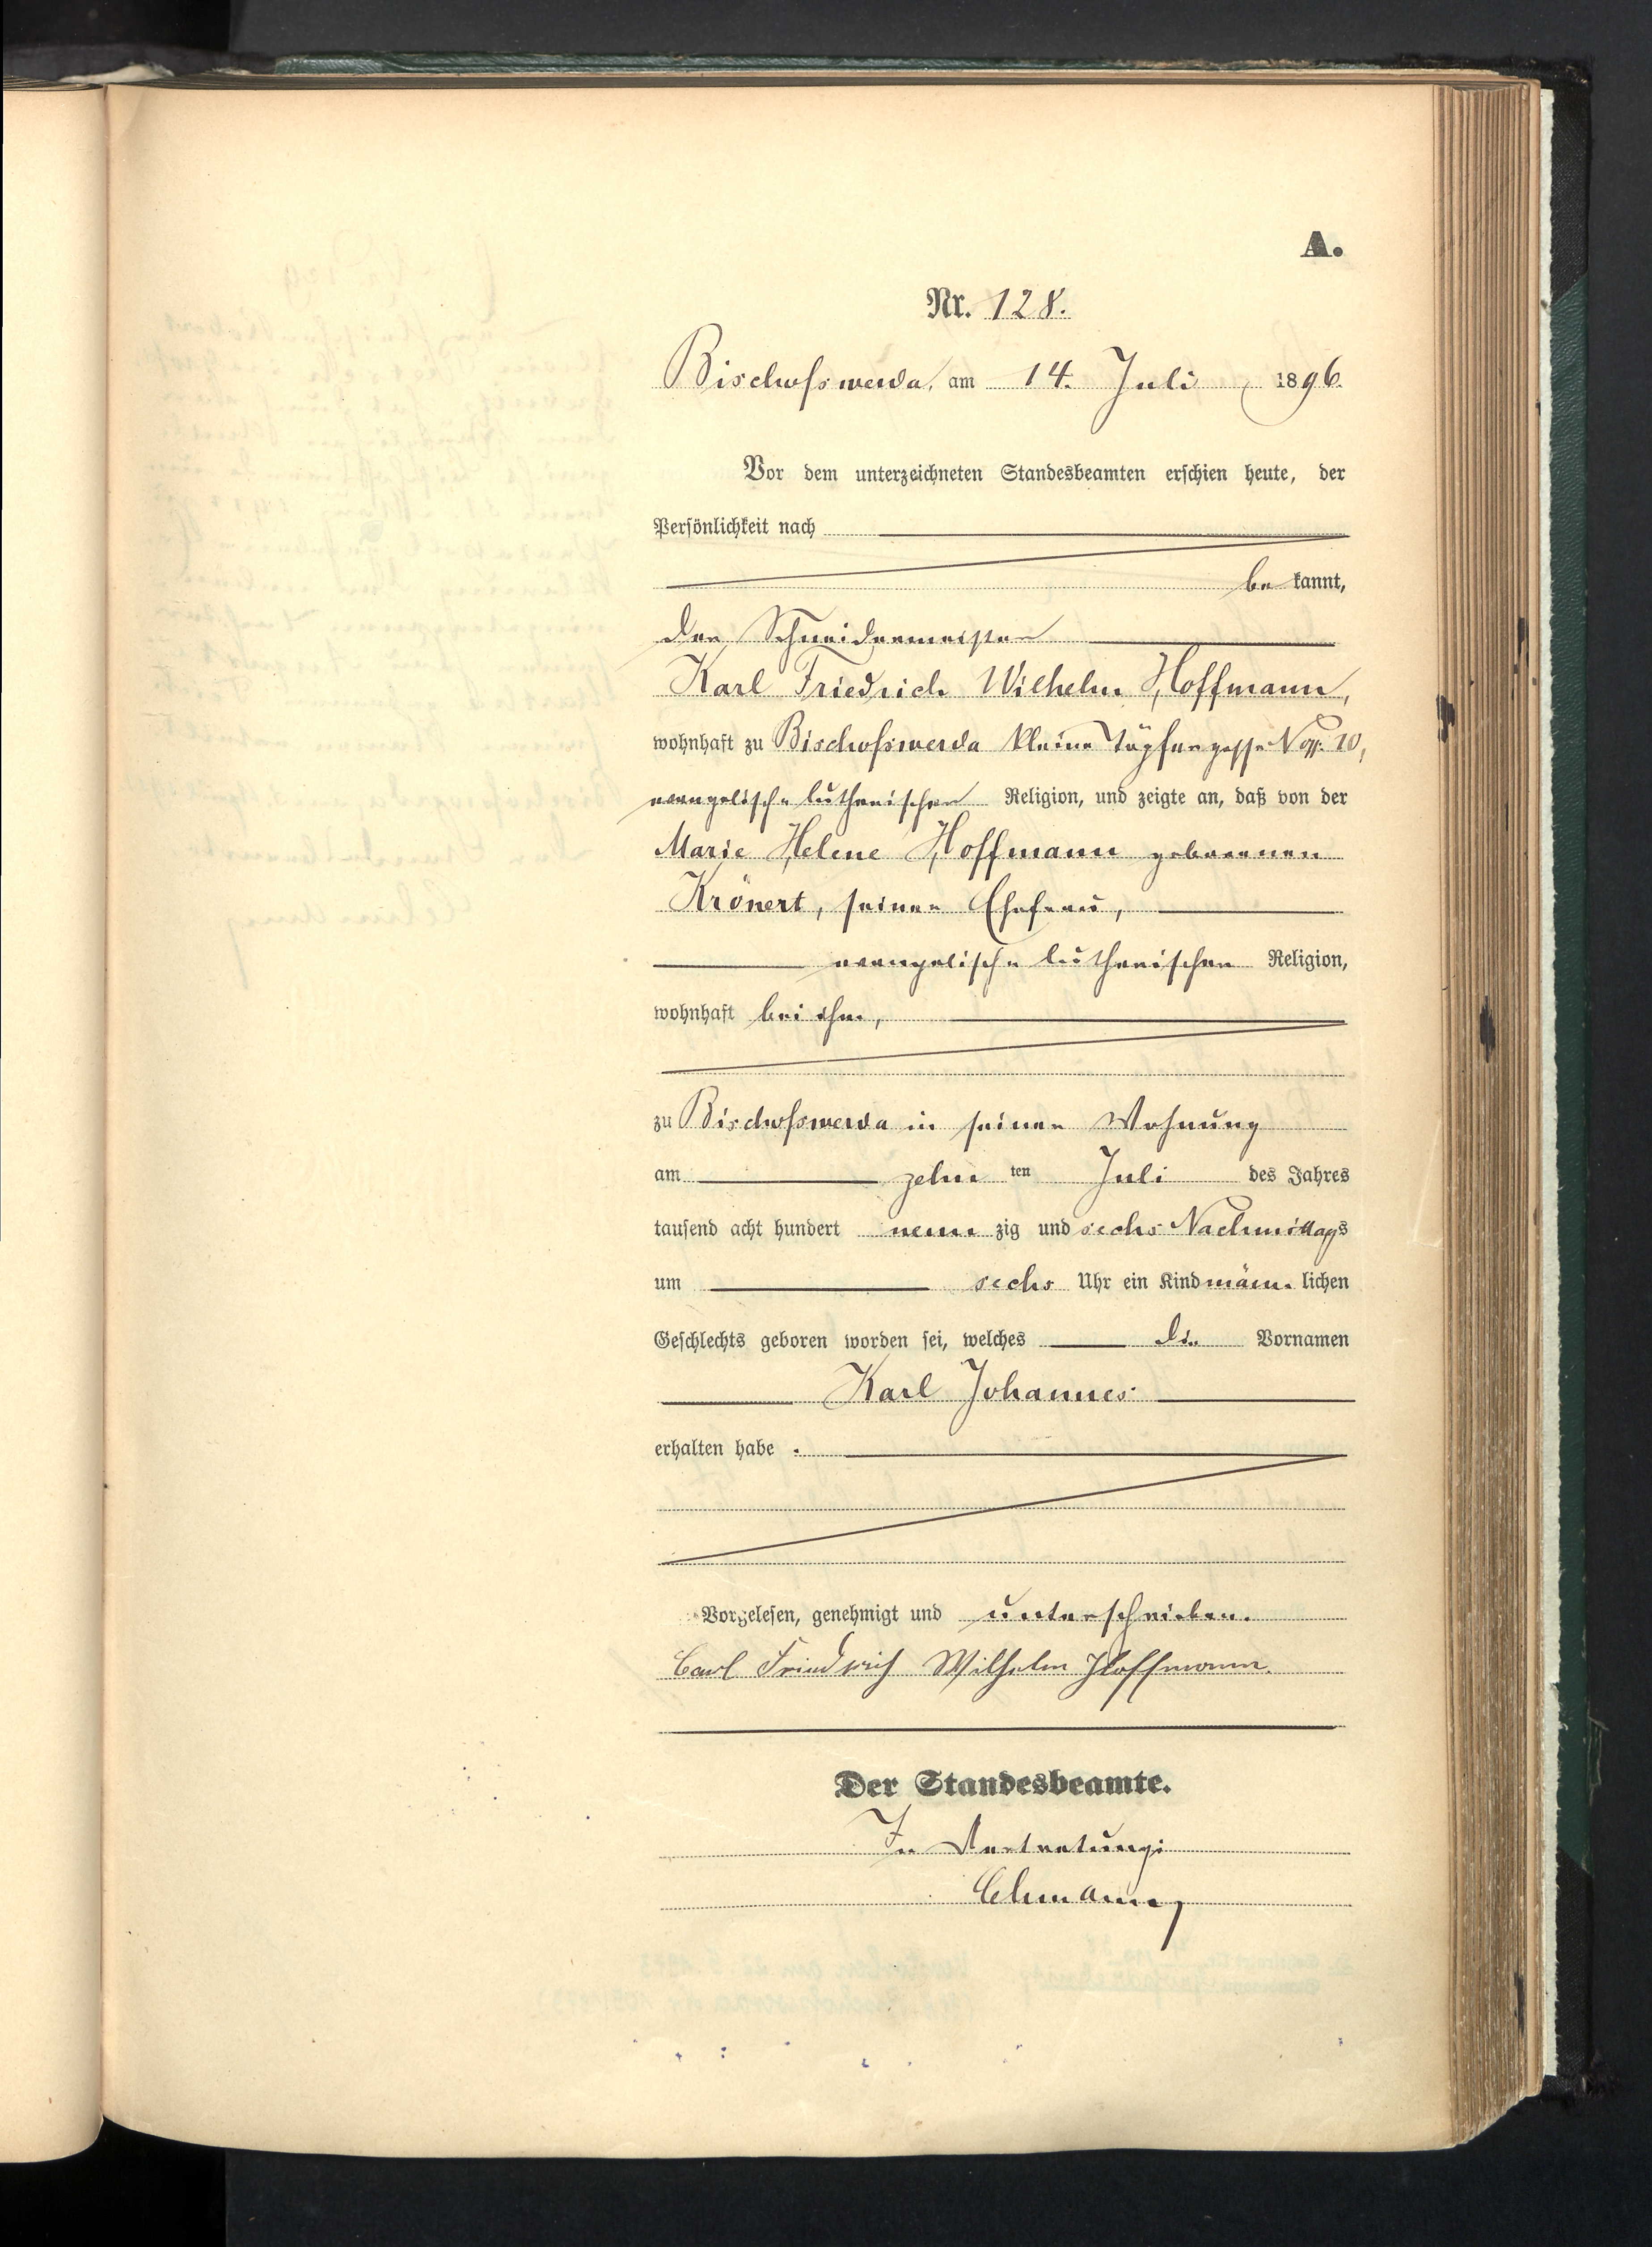 A.
Nr. 128.
Bischofswerda, am 14. Juli 1896.
Vor dem unterzeichneten Standesbeamten erschien heute, der
Persönlichkeit nach
be kannt,
der Schneidermeister
Karl Friedrich Wilhelm Hoffmann,
wohnhaft zu Bischofswerda kleine Töpfergasse No. 10,
evangelisch-lutherischer Religion, und zeigte an, daß von der
Marie Helene Hoffmann geborenen
Krönert, seiner Ehefrau,
evangelisch-lutherischer Religion,
wohnhaft bei ihm,
zu Bischofswerda in seiner Wohnung
am zehn ten Juli des Jahres
tausend acht hundert neun zig und sechs Nachmittags
um sechs Uhr ein Kind männ lichen
Geschlechts geboren worden sei, welches die Vornamen
Karl Johannes
erhalten habe.
Vorgelesen, genehmigt und unterschrieben.
Carl Friedrich Wilhelm Hoffmann.
Der Standesbeamte.
In Vertretung:
Lehmann